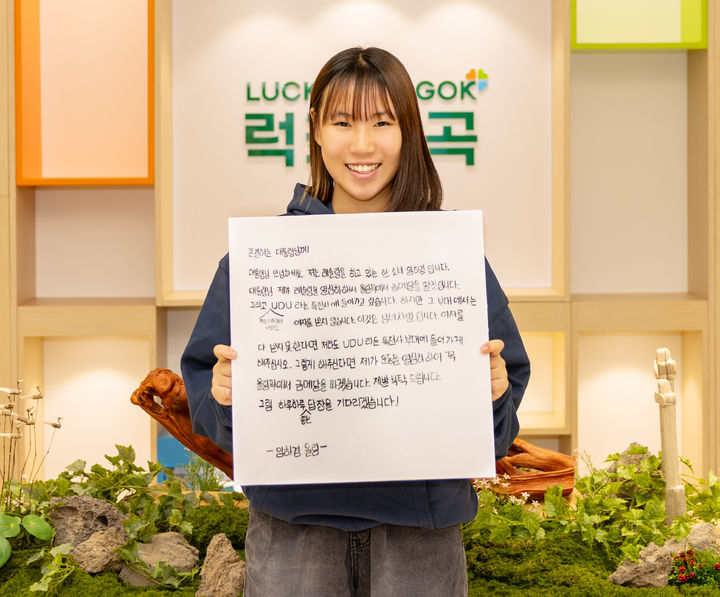 LUCK GOK
럭 곡
존경하는 대통령님께
대통령님 안녕하세요. 저는 레슬링을 하고 있는 한 소녀 입니다.
대통령님 제가 레슬링을 열심히해서 올림픽에서 금메달을 딸것입니다.
그리고 UDU 라는 특전사에 들어가고 싶습니다. 하지만 그 부대에서는
여자를 받지 않습니다. 이것은 남녀차별입니다. 여자를
다 받지 못한다면 저라도 UDU 라는 특전사 부대에 들어가게
해주십시오. 그렇게 해주신다면 제가 운동을 열심히 하여 꼭
올림픽에서 금메달을 따겠습니다. 제발 부탁 드립니다.
그럼 하루하루 답장을 기다리겠습니다!
좋은
- 올림 -